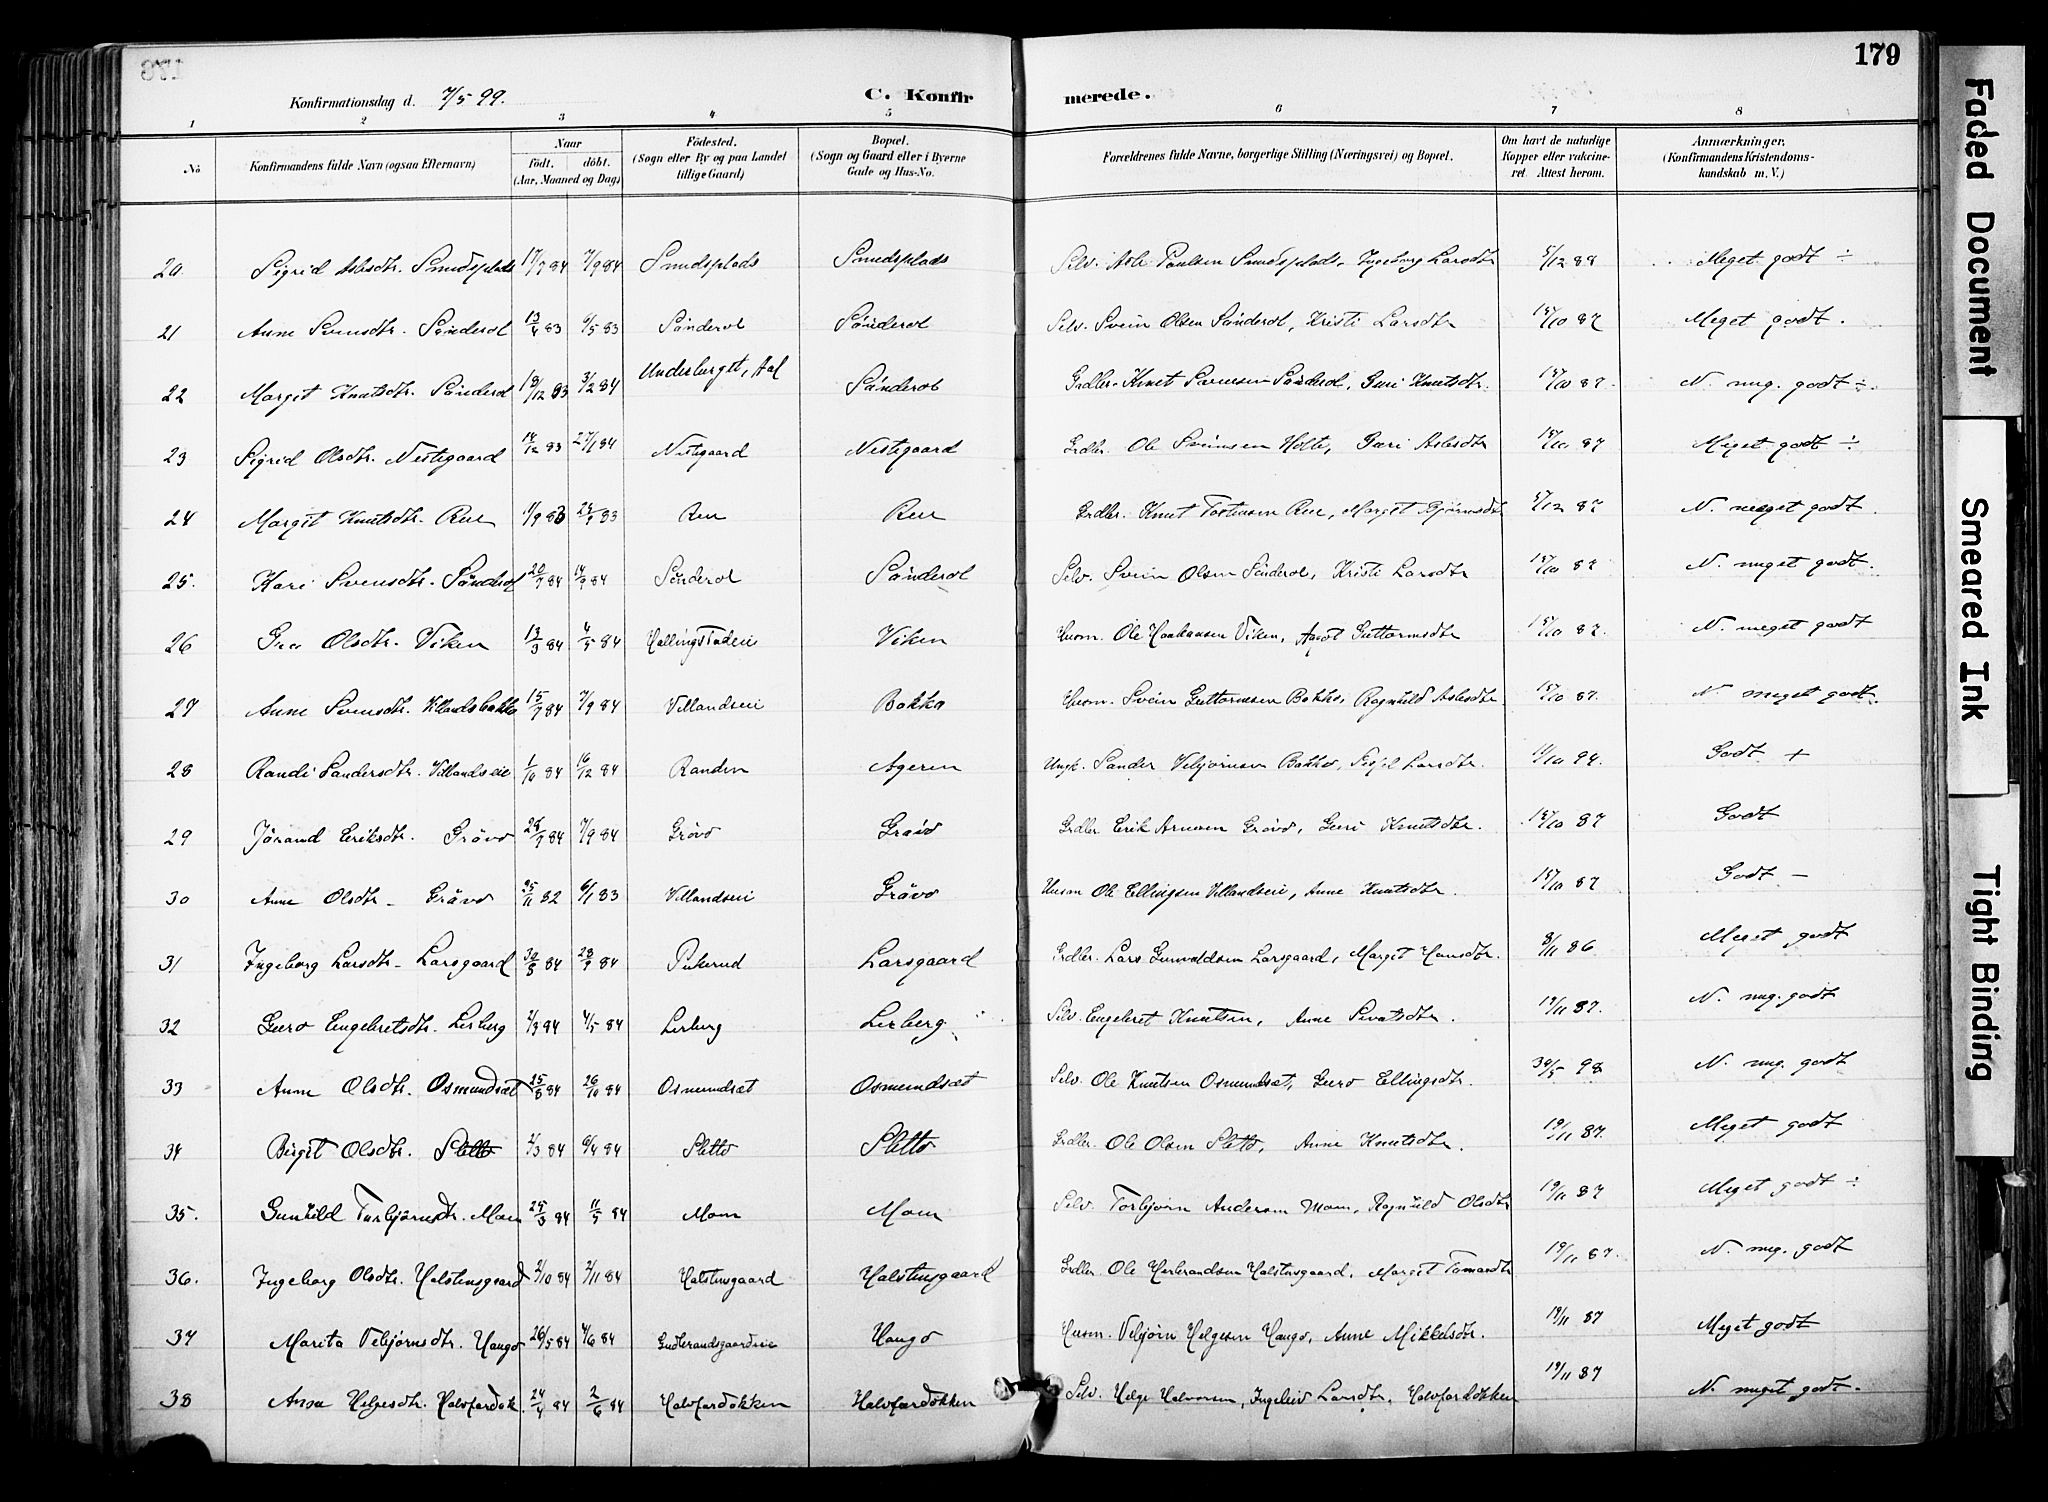 179
Konfirmationsdag d. 7/5 99.
C. Konfir merede.
1 2 3 4 5 6 7 8
No
Konfirmandens fulde Navn (ogsaa Efternavn)
Naar
födt. döbt.
(Aar, Maaned og Dag)
Födested.
(Sogn eller By og paa Landet
tillige Gaard)
Bopæl.
(Sogn og Gaard eller i Byerne
Gade og Hus-No.
Forældrenes fulde Navne, borgerlige Stilling (Næringsvei) og Bopæl.
Om havt de naturlige
Kopper eller vakcine-
ret. Attest herom.
Anmærkninger.
(Konfirmandens Kristendoms-
kundskab m. V.)
20 Sigrid Aslesdtr. Smedsplads 17/7 84 7/9 84 Smedsplads Smedsplads Selv. Asle Paulsen Smedsplads, Ingeborg Larsdtr 5/12 88 Meget godt ÷
21 Anne Svensdtr. Sönderol 13/4 83 6/5 83 Sönderol Sönderol Selv. Svein Olsen Sönderol, Kristi Larsdtr 15/10 87 Meget godt.
22 Margit Knutsdtr. Sönderol 18/12 83 3/2 84 Underberget, Aal Sönderol Grdbr. Knut Svensen Sönderol, Guri Knutsdtr. 15/10 87. N. mg. godt ÷.
23 Sigrid Olsdtr. Nestegaard 14/12 83 27/1 84 Nestegaard Nestegaard Grdbr. Ole Svensen Holto, Guri Aslesdtr 15/10 87 Meget godt ÷
24 Margit Knutsdtr. Rue 1/9 83 23/9 83 Rue Rue Grdbr. Knut Tostensen Rue, Margit Björnsdtr 5/12 87 N. meget godt.
25. Kari Svensdtr. Sönderol 20/7 84 14/9 84 Sönderol Sönderol Selv. Svein Olsen Sönderol, Kristi Larsdtr 15/10 87 N. meget godt.
26 Gro Olsdtr. Viken 13/3 84 4/5 84 Viken Husm. Ole Haakensen Viken, Agot Guttormsdtr 15/10 87. N. meget godt
27 Anne Svensdtr. Villandsbakko 15/7 84 7/9 84 Villandseie Bakko Husm. Svein Guttormsen Bakko, Ragnhild Aslesdtr 15/10 87. N. meget godt.
28 Randi Sandersdtr. Villandseie 1/10 84 16/12 84 Randen Ageren Ungk. Sander Vebjörnsen Bakko, Larsdtr. /10 94. Godt +
29 Jörand Eriksdtr. Grövo 28/7 84 7/9 84 Grövo Grövo Grdbr. Erik Arnesen Grövo, Guri Knutsdtr. 15/10 87 Godt
30 Anne Olsdtr – Grövo 25/11 82 6/1 83 Villandseie Grövo Husm Ole Ellingsen Villandseie, Anne Knutsdtr. 15/10 87 Godt –
31 Ingeborg Larsdtr – Larsgaard 84 84 Pukerud Larsgaard Grdbr. Lars Gunvaldsen Larsgaard, Margit Hansdtr. 8/11 86 Meget godt
32 Guro Engebretsdtr. Lerberg 2/3 84 4/5 84 Lerberg Lerberg Selv. Engebret Knutsen, Anne Sivatsdtr. 19/11 87. N. mg. godt
33 Anne Olsdtr. Osmundsæt 25/8 84 26/10 84 Osmundsæt Osmundsæt Selv. Ole Knutsen Osmundsæt, Guro Ellingsdtr. 30/5 98 N. mg. godt
34 Birgit Olsdtr. Sletto 2/3 84 6/4 84 Sletto Sletto Grdbr. Ole Olsen Sletto, Anne Knutsdtr. 19/11 87. Meget godt
35. Gunhild Torbjörnsdtr. Moen 25/3 84 11/5 84 Moen Moen Selv. Torbjörn Andersen Moen, Ragnhild Olsdtr 19/11 87 Meget godt ÷
36. Ingeborg Olsdtr. Halstensgaard 2/10 84 2/11 84 Halstensgaard Halstensgaard Grdbr. Ole Herbrandsen Halstensgaard, Margit Tomasdtr 19/11 87. N. mg. godt
37 Marita Vebjörnsdtr. Haugo 26/5 84 4/6 84 Gudbrandsgaardseie Haugo Husm. Vebjörn Helgesen Haugo, Anne Mikkelsdtr. 19/11 87 Meget godt
38 Anna Helgesdtr. Halvfardok. 24/4 84 2/6 84 Halvfardokken Halvfardokken Selv. Helge Halvorsen, Ingeleiv Larsdtr, Halvfardokken 19/11 87 N. meget godt.
Faded Document
Smeared Ink
Tight Binding